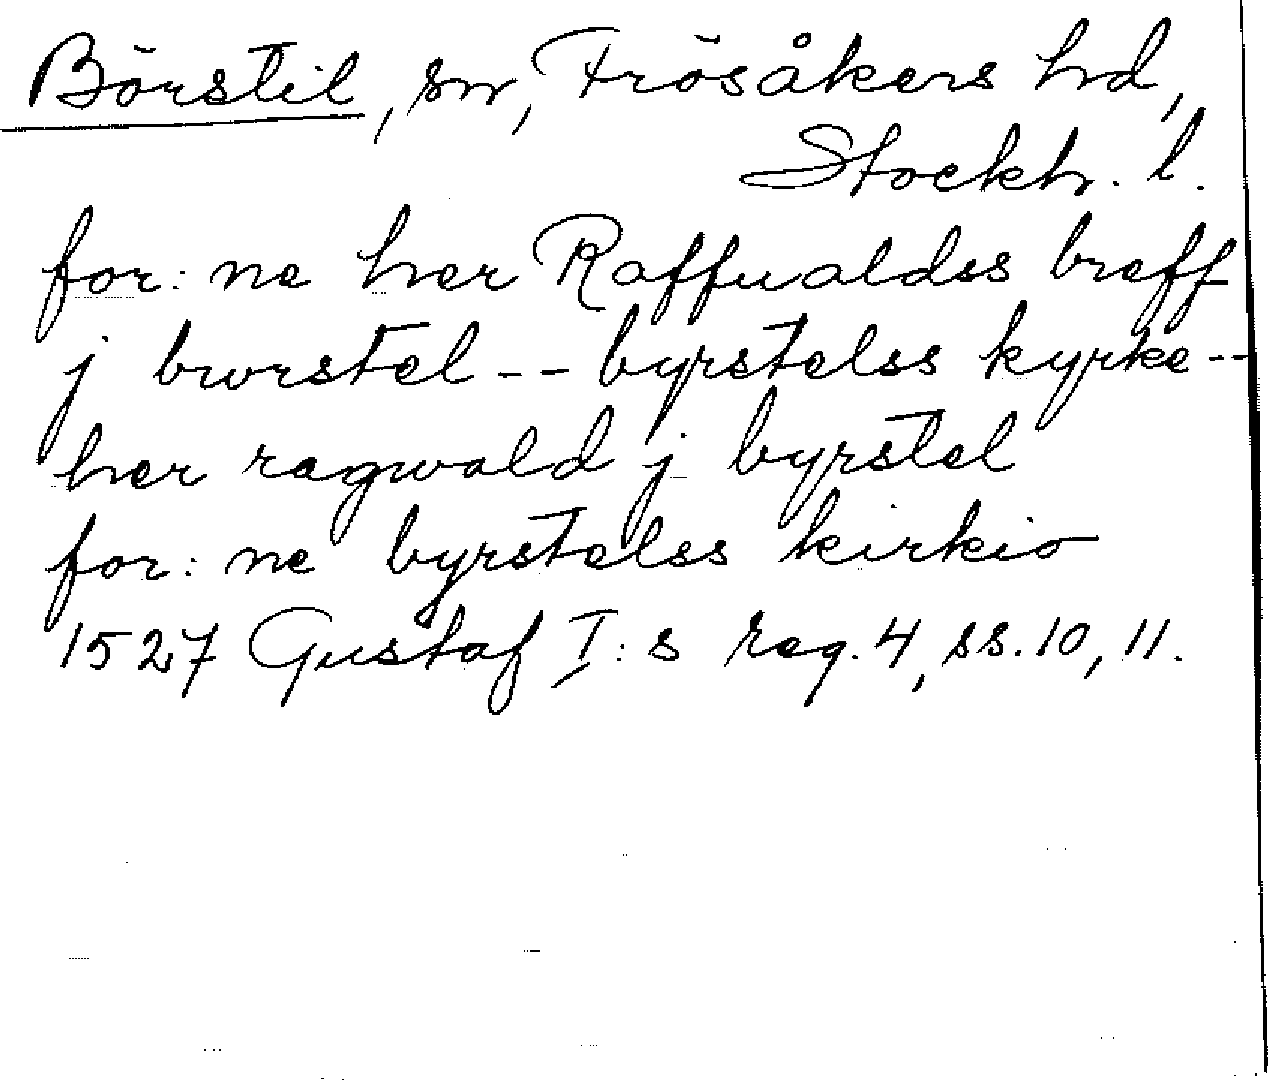 Börstil, sn, Frösåkers hd,
Stockh. l.
for: ne her Raffualdss breff
j bwrstel -- byrstelss kyrke --
her ragwald j byrstel
for: ne byrstelss kirkio
1527 Gustaf I:s reg. 4, ss. 10, 11.